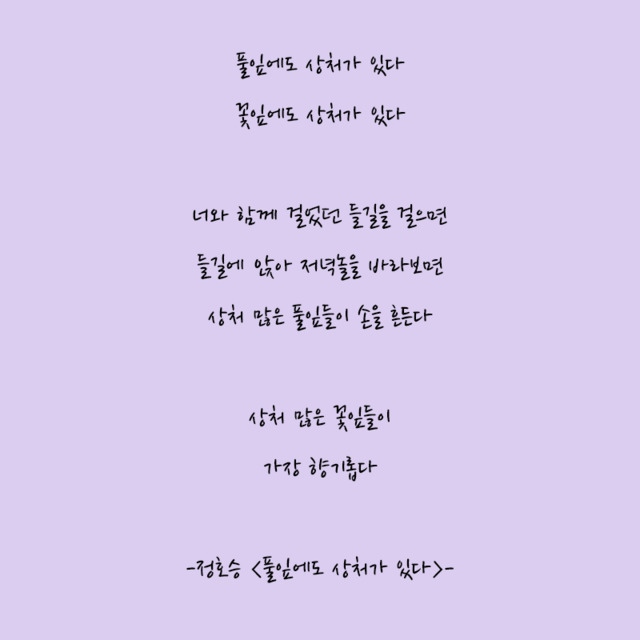 풀잎에도 상처가 있다
꽃잎에도 상처가 있다
너와 함께 걸었던 들길을 걸으면
들길에 앉아 저녁놀을 바라보면
상처 많은 풀잎들이 손을 흔든다
상처 많은 꽃잎들이
가장 향기롭다
-정호승 <풀잎에도 상처가 있다>-